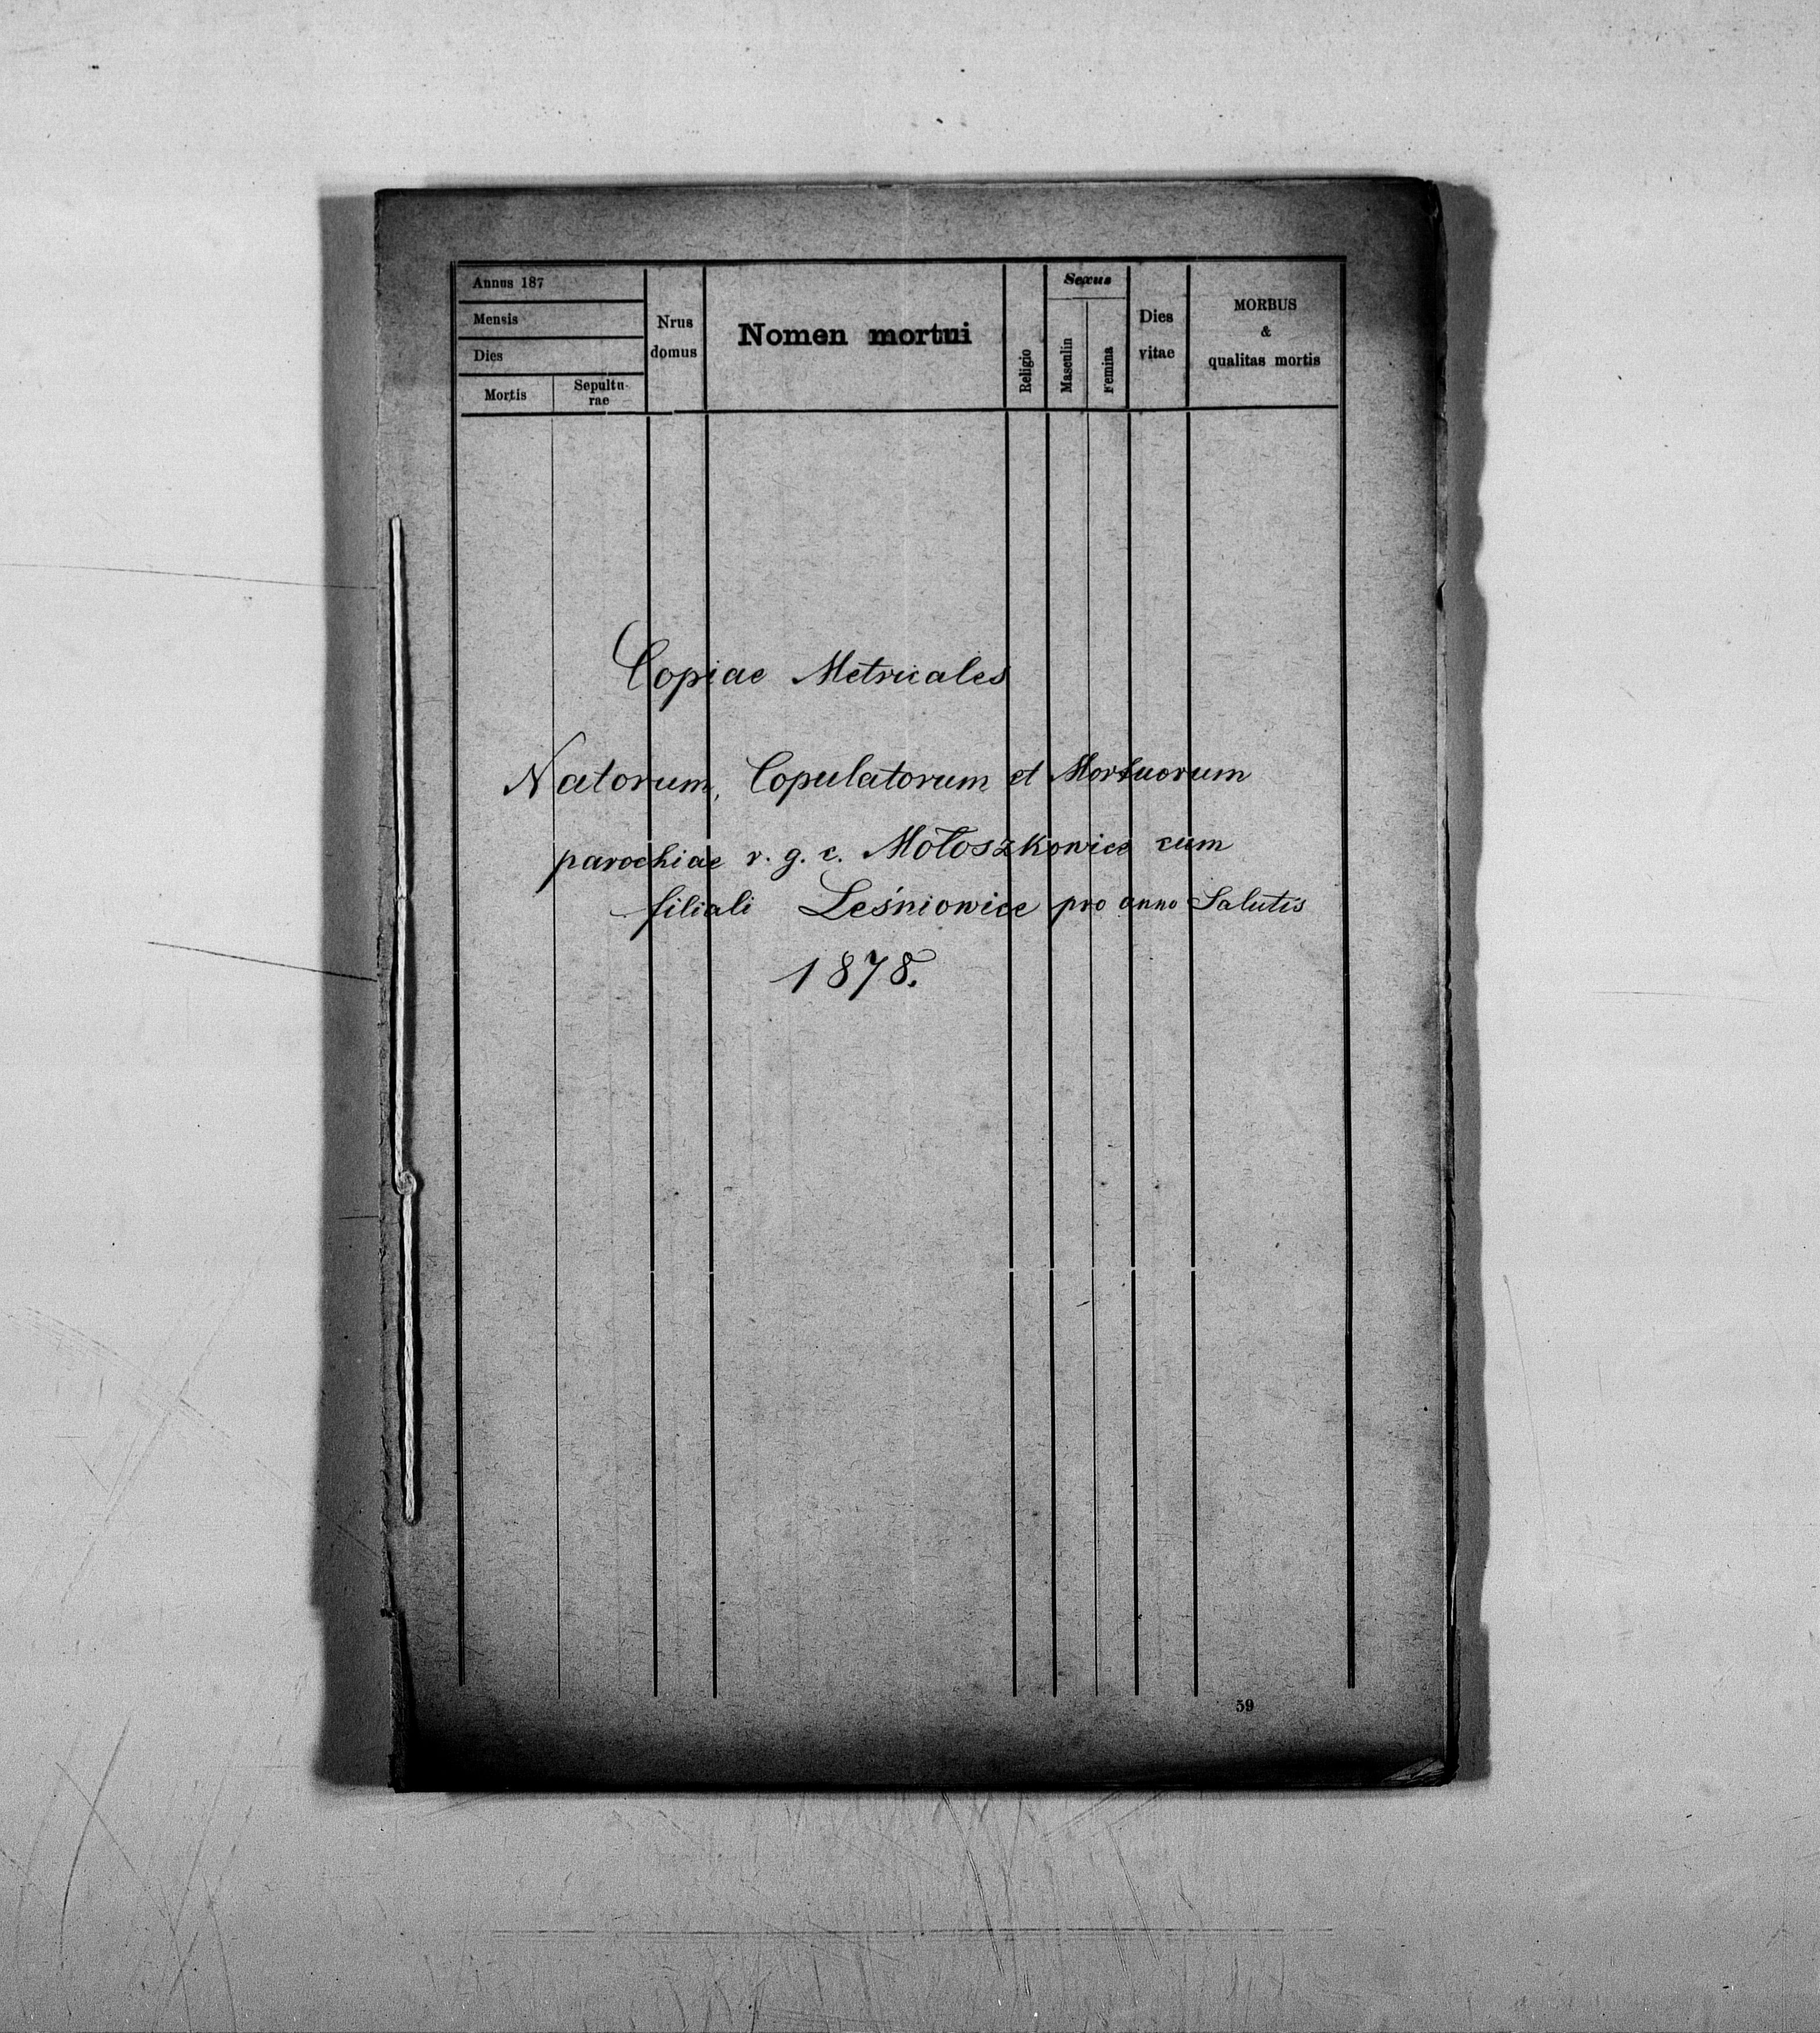 Annus 187
Mensis
Dies
Mortis
Sepultu-
rae
Nrus
domus
Nomen mortui
Religio
Sexus
Masculin
Femina
Dies
vitae
MORBUS
&
qualitas mortis
Copiae Metricales
Natorum, Copulatorum et Mortuorum
parochiae r. g. c. Mołoszkowice cum
filiali Leśniowice pro anno Salutis
1878.
59